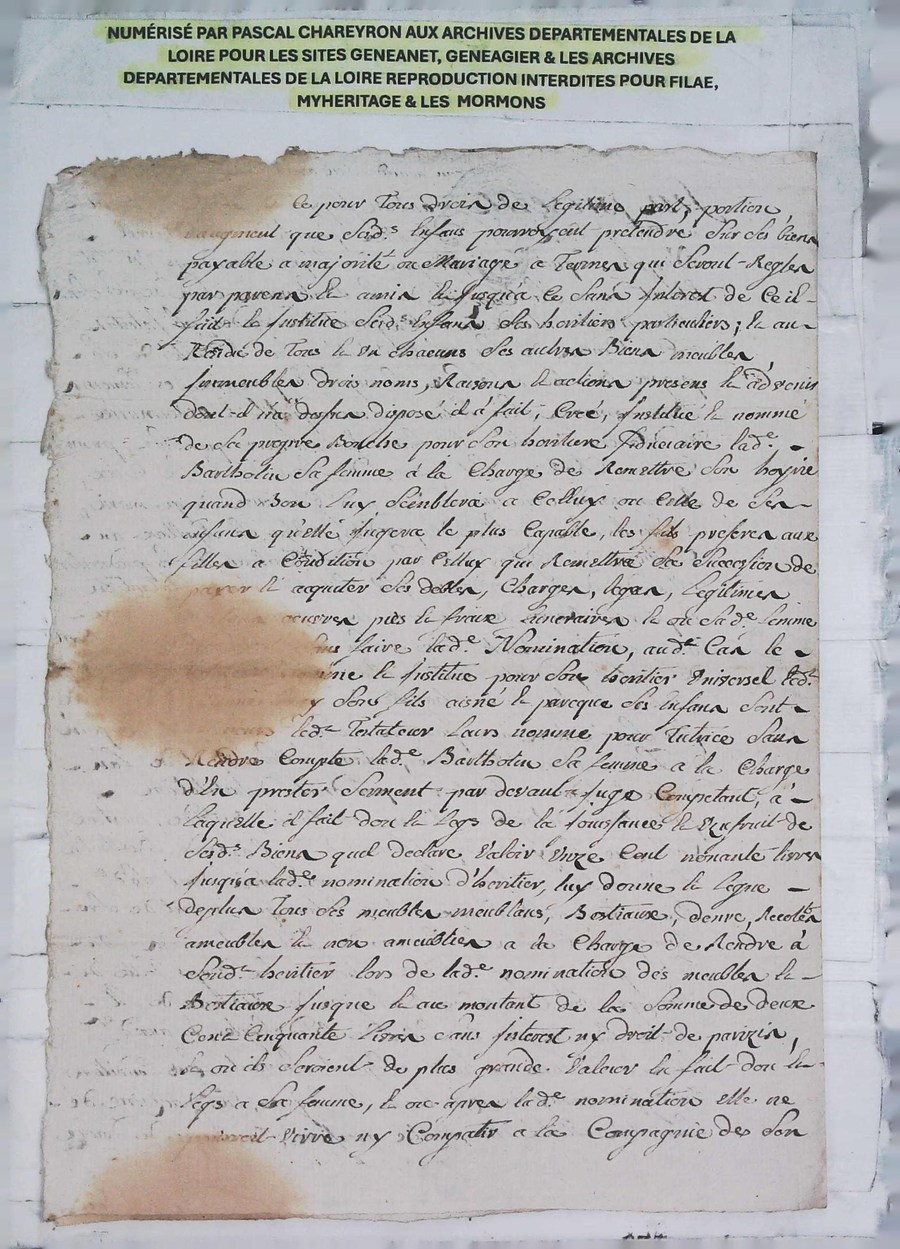 NUMÉRISÉ PAR PASCAL CHAREYRON AUX ARCHIVES DEPARTEMENTALES DE LA
LOIRE POUR LES SITES GENEANET, GENEAGIER & LES ARCHIVES
DEPARTEMENTALES DE LA LOIRE REPRODUCTION INTERDITES POUR FILAE,
MYHERITAGE & LES MORMONS
Ce pour Tous drois de Legitime part, portion
augment que sesd.s Enfans pourroyent pretendre sur ses biens
payable a majorité ou Mariage a Termes qui seront Regles
par parens et amis et jusqu'a ce sans Interest de ce il
fait et Institue sesd. Enfans ses heritiers particuliers; et au
Residu de Tous et un chacuns ses autres Biens meubles,
Immeubles drois noms, Raisons et actions presens et advenir
dont il n'a desseu disposé il a fait, Creé, Institué et nommé
de sa propre Bouche pour son heritiere fiduciaire lad.e
Bartholin sa femme a la Charge de Remettre son hoyrie
quand Bon luy semblera a Celluy ou Celle de ses
Enfans qu'elle jugera le plus Capable, les fils preferes aux
filles a Condition par Celluy qui Remettra sa succession de
payer et acquiter ses debtes, Charges, legas, Legitimes
oeuvres pies et fraix funeraires et ou sad.e femme
faire lad.e Nomination, aud. Cas le
et Institue pour son heritier Universel led.
son fils aisné et parceque ses Enfans sont
led. Testateur leurs nomme pour Tutrice sans
Rendre Compte lad.e Bartholin sa femme a la Charge
d'En prester serment par devant Juge Competant, a
laquelle il fait don et legs de la jouissance et Uzufruit de
sesd. Biens quel declare Valoir Unze Cent nonante livres
jusqu'a lad.e nomination d'heritier, luy donne et legue
deplus Tous ses meubles meublans, Bestiaux, denré, Recoltes
ameublies et non ameublies a la Charge de Rendre a
sond. heritier lors de lad.e nomination des meubles et
Bestiaux jusque et au montant de la somme de deux
Cent Cinquante livres sans Interest ny droit de parizis,
et ou ils seroient de plus grande Valeur En fait don et
legs a sa femme, et ou apres lad.e nomination elle ne
pourroit vivre ny Compatir a la Compagnie des son